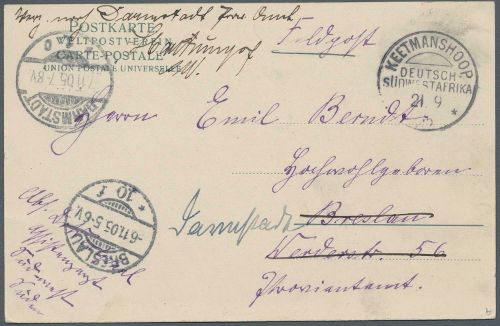 Darmstadt
POSTKARTE
WELTPOSTVEREIN
CARTE POSTALE
UNION POSTALE UNIVERSELLE
Feldpost
KEETMANSHOOP
DEUTSCH-
SÜDWESTAFRIKA
21. 9
DARMSTADT
7.11.05.7-8V.
Herrn Emil Berndt
Hochwohlgeboren
Darmstadt Breslau
Werderstr. 56
Proviantamt.
BRESLAU
-6.11.05.5-6V.
* 10 f
Abs.
Assistenzarzt
Südwest